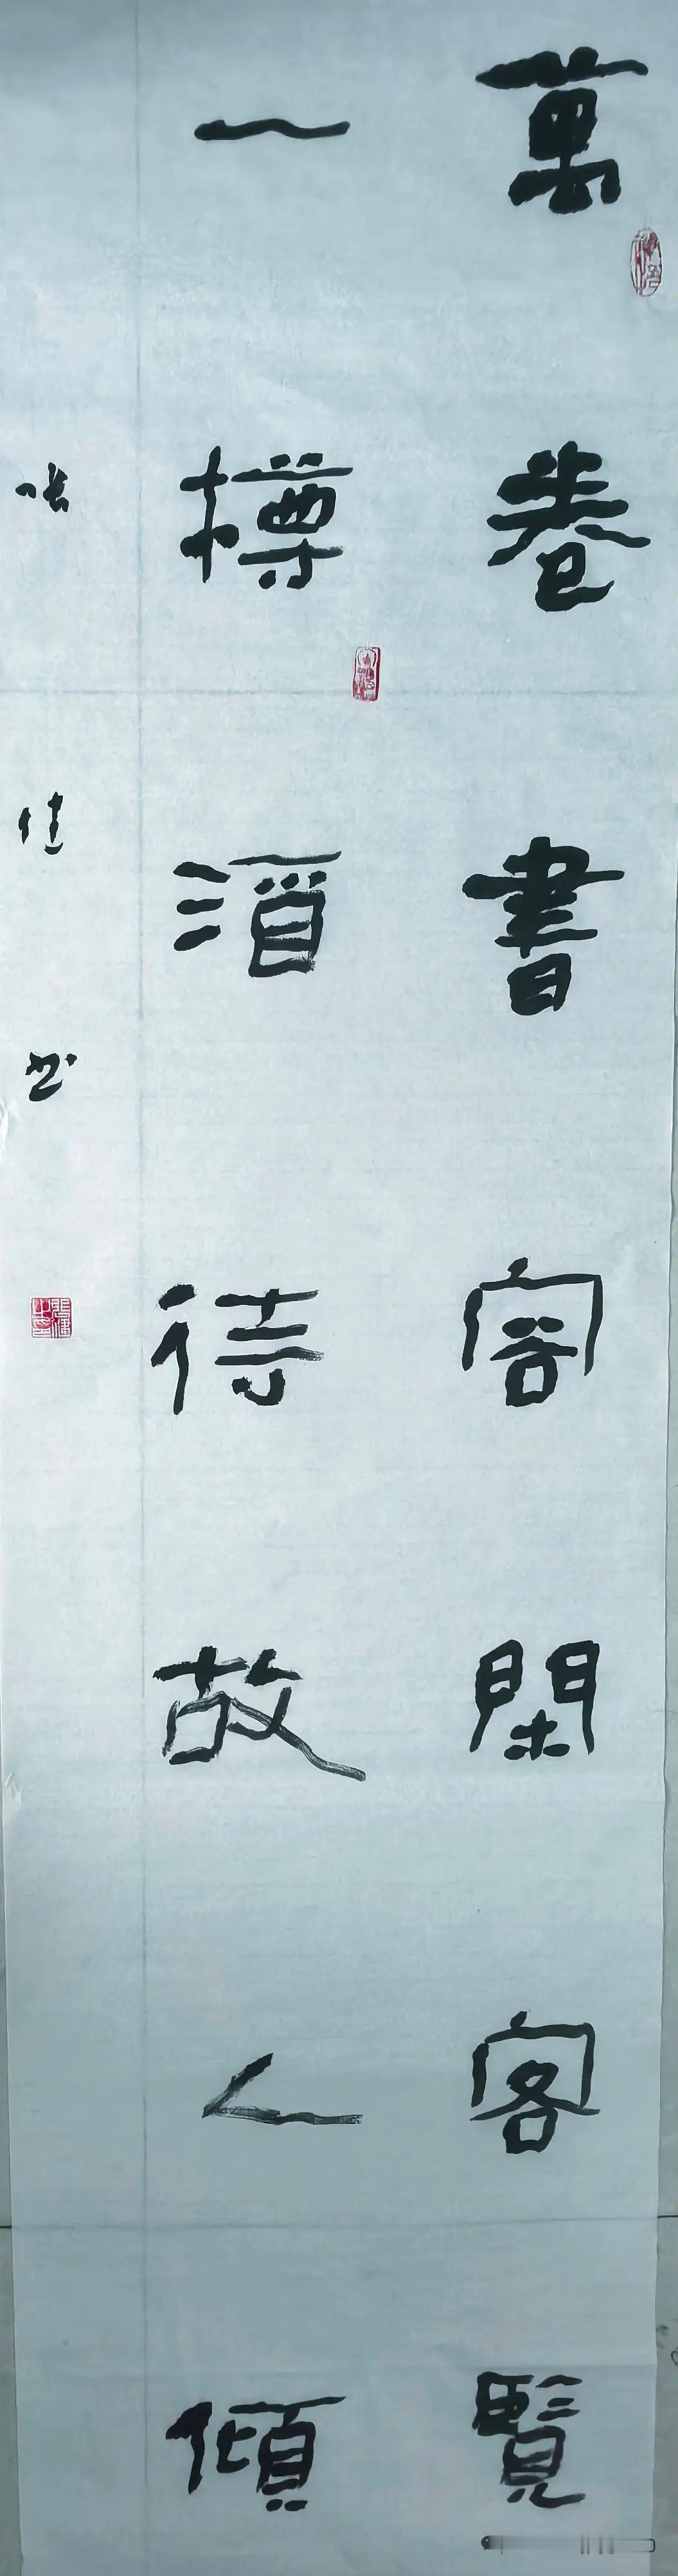 萬卷書容閑客覽
一樽酒待故人傾
張佳书